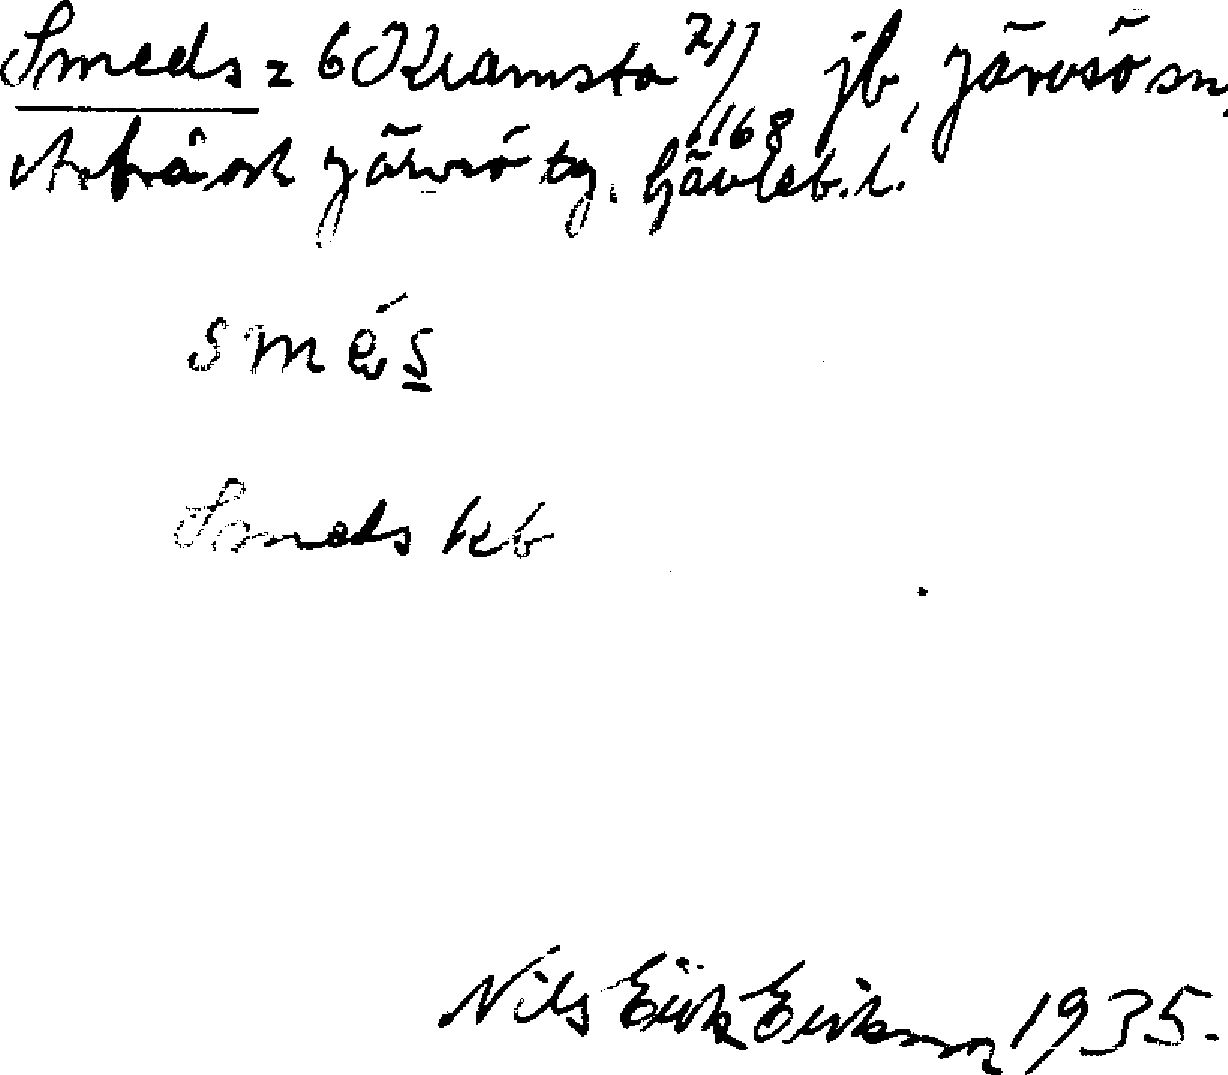 Smeds = 6 Kramsta 21/168 jb, Järvsö sn,
Arbrå och Järvsö tg. Gävleb. l.
smés
Smeds kb
Nils Erik Eriksson 1935.